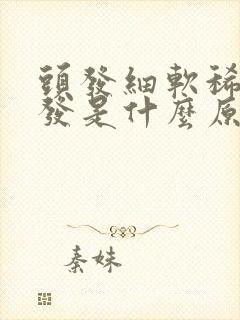 頭發細軟稀
發是什麼原
秦妹